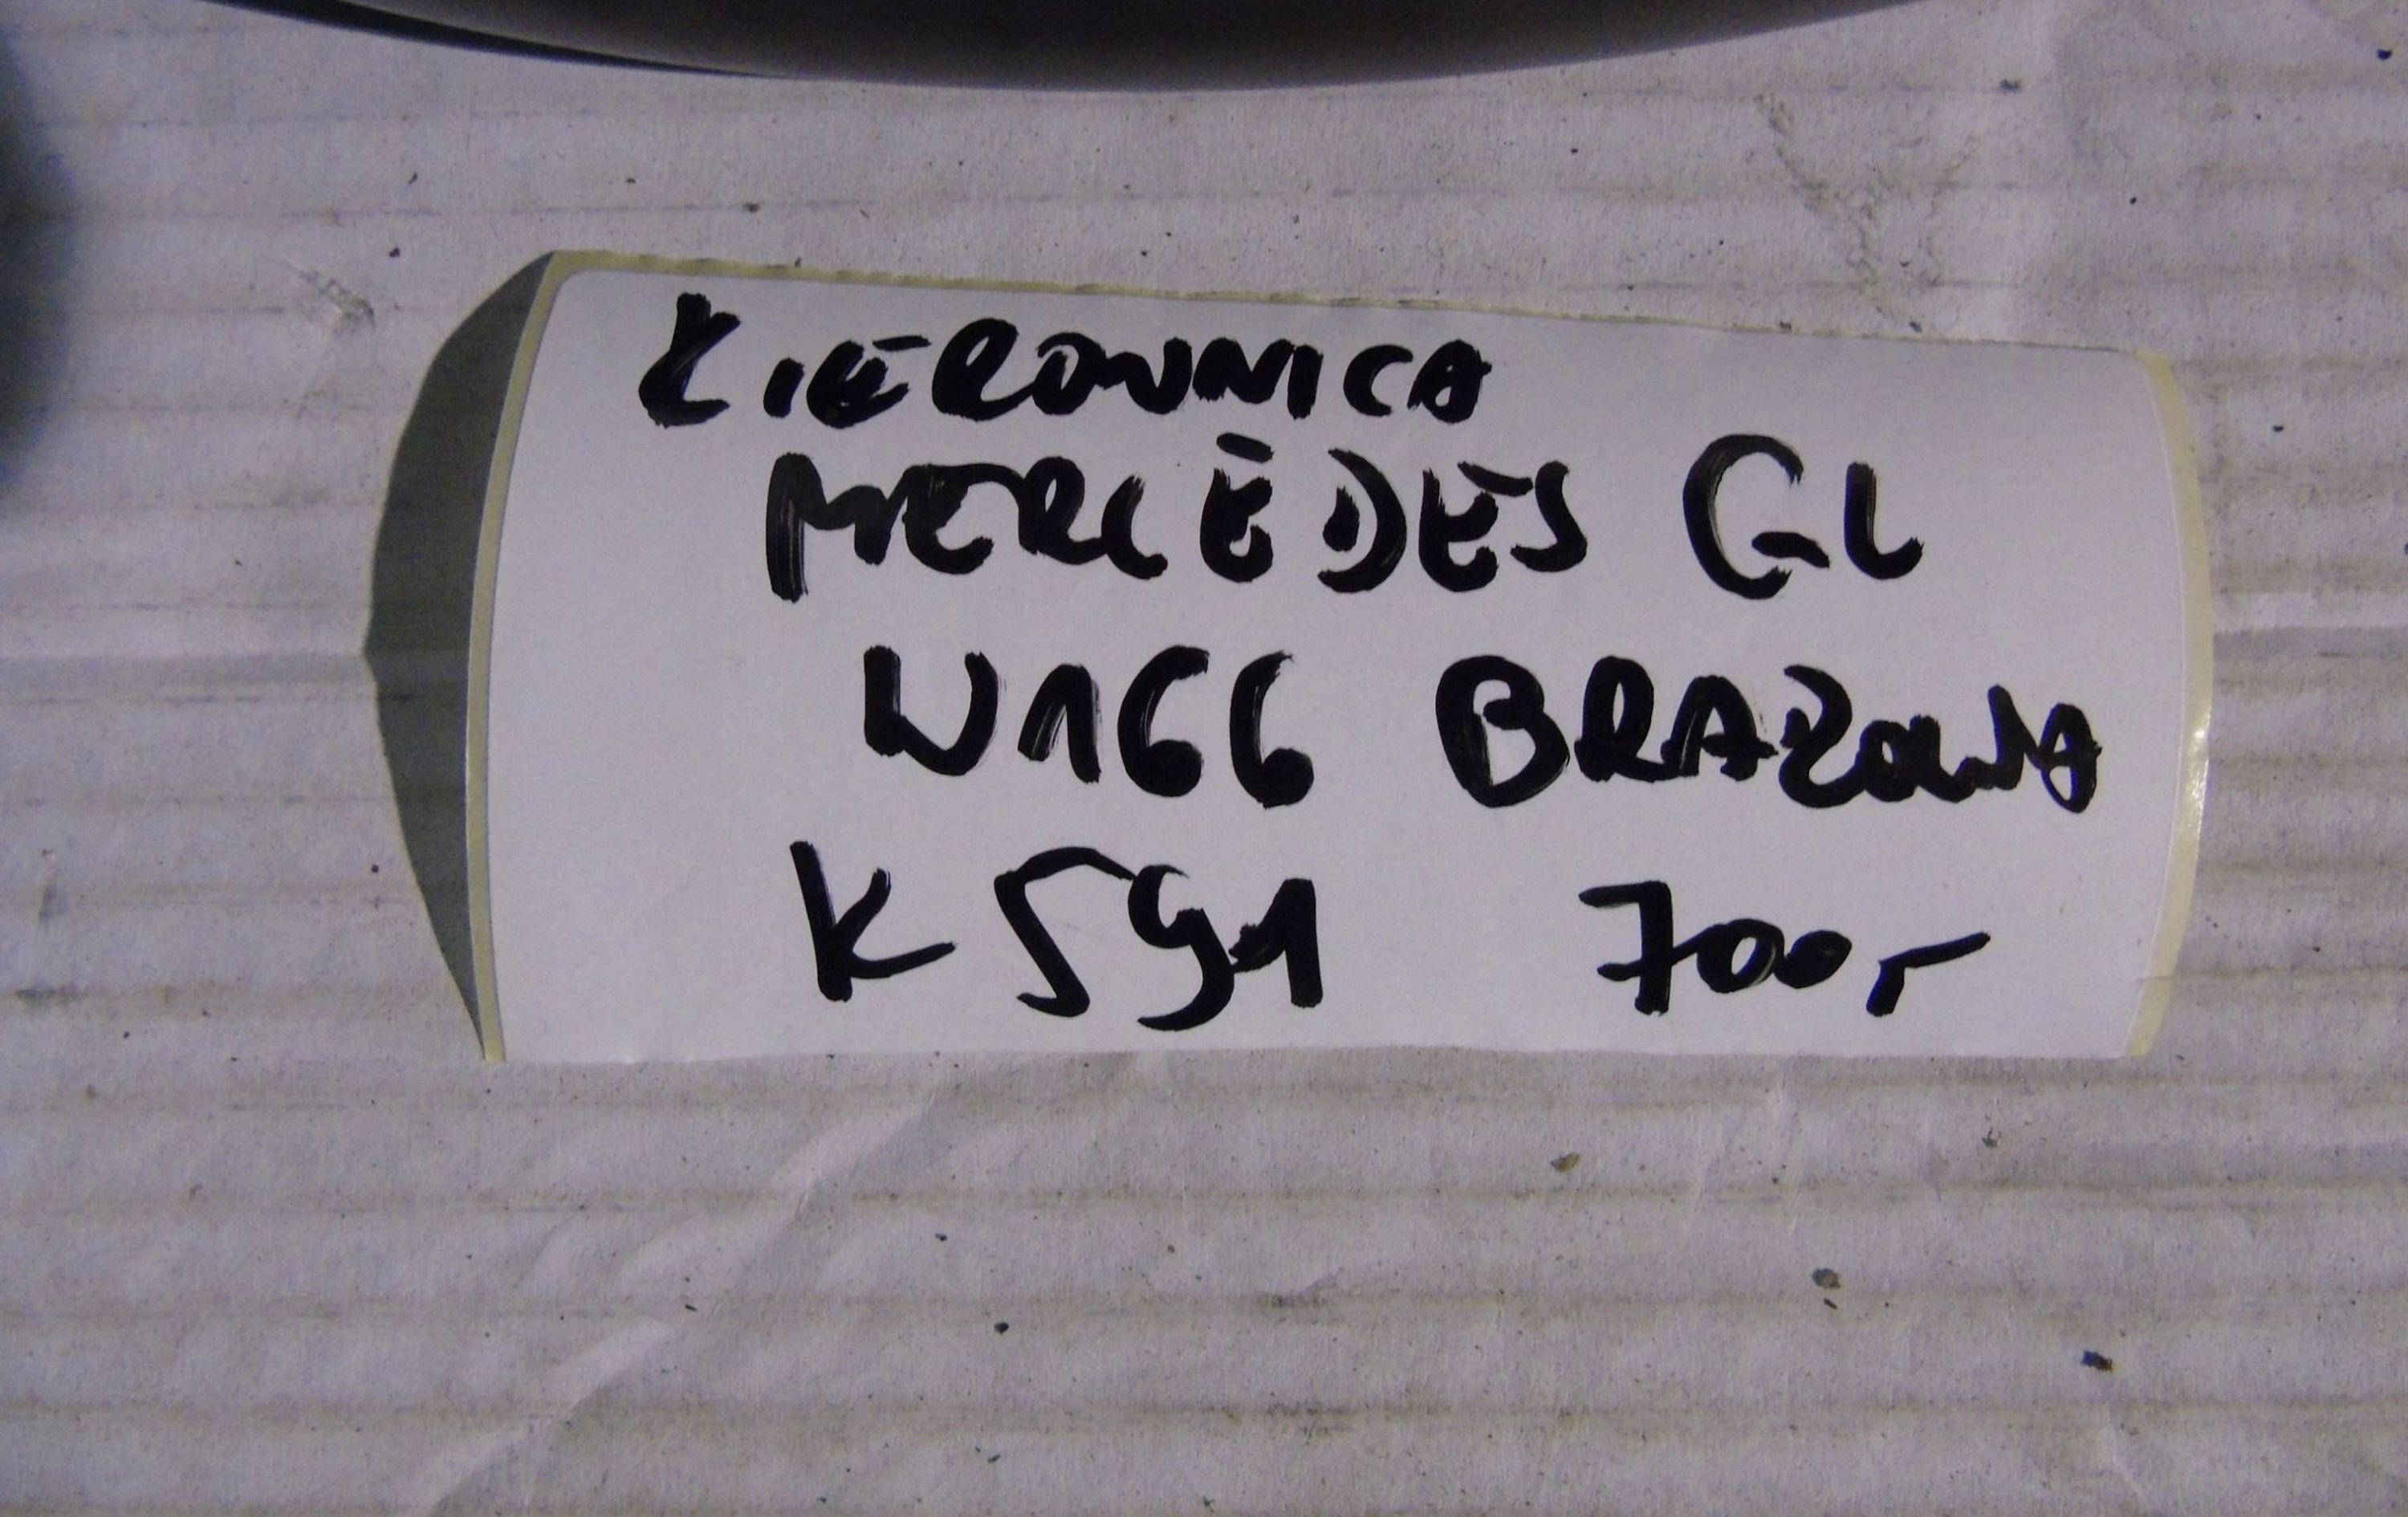 KIEROWNICA
MERCEDES GL
W166 BRAZOWA
K591 700,-